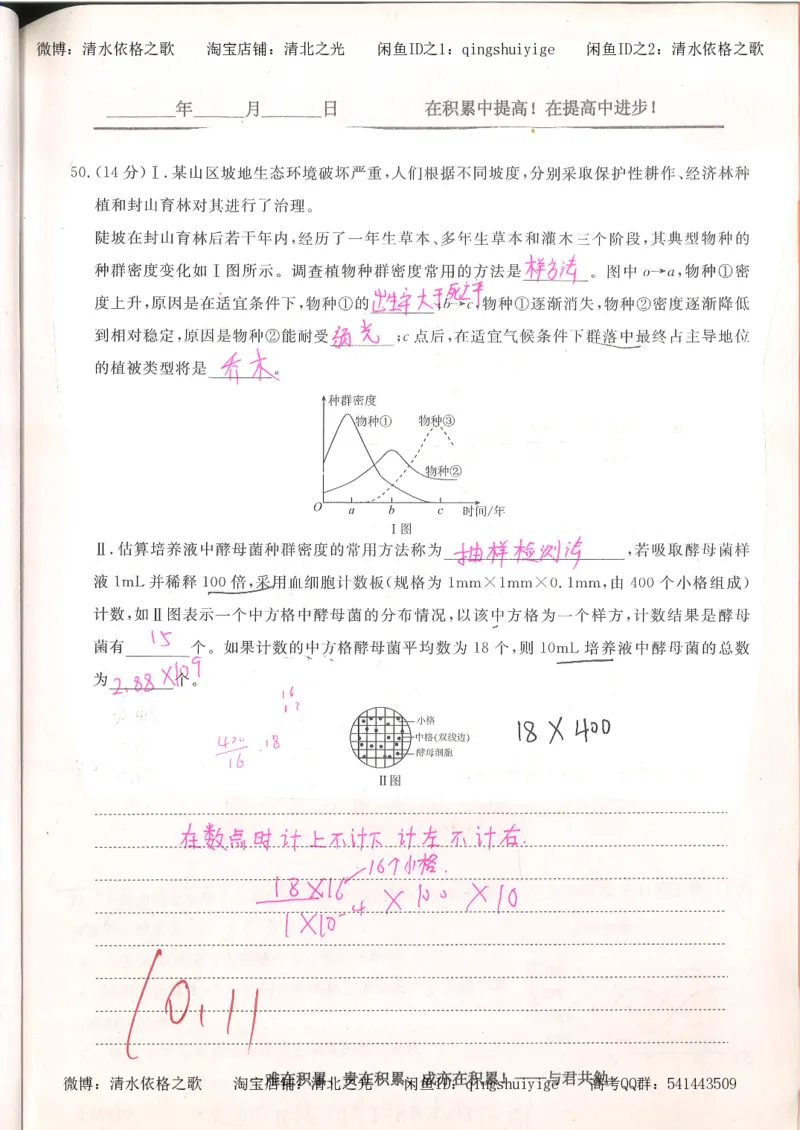 微博：清水依格之歌 淘宝店铺：清北之光 闲鱼ID之1：qingshuiyige 闲鱼ID之2：清水依格之歌
______年______月______日 在积累中提高！在提高中进步！
50.(14分)Ⅰ.某山区坡地生态环境破坏严重,人们根据不同坡度,分别采取保护性耕作、经济林种
植和封山育林对其进行了治理。
陡坡在封山育林后若干年内,经历了一年生草本、多年生草本和灌木三个阶段,其典型物种的
种群密度变化如Ⅰ图所示。调查植物种群密度常用的方法是样方法。图中o→a,物种①密
度上升,原因是在适宜条件下,物种①的出生率大于死亡率;b→c,物种①逐渐消失,物种②密度逐渐降低
到相对稳定,原因是物种②能耐受弱光;c点后,在适宜气候条件下群落中最终占主导地位
的植被类型将是乔木。
种群密度
物种① 物种③
物种②
O a b c 时间/年
Ⅰ图
Ⅱ.估算培养液中酵母菌种群密度的常用方法称为抽样检测法,若吸取酵母菌样
液1mL并稀释100倍,采用血细胞计数板(规格为1mm×1mm×0.1mm,由400个小格组成)
计数,如Ⅱ图表示一个中方格中酵母菌的分布情况,以该中方格为一个样方,计数结果是酵母
菌有15个。如果计数的中方格酵母菌平均数为18个,则10mL培养液中酵母菌的总数
为2.88×10⁹个。
16
400/16 .18
小格
中格(双线边)
酵母细胞
Ⅱ图
18×400
在数点时计上不计下 计左不计右.
16个小格.
18×16/1×10⁻⁴ ×100 ×10
难在积累 贵在积累 成亦在积累！——与君共勉
微博：清水依格之歌 淘宝店铺：清北之光 闲鱼ID：qingshuiyige 高考QQ群：541443509